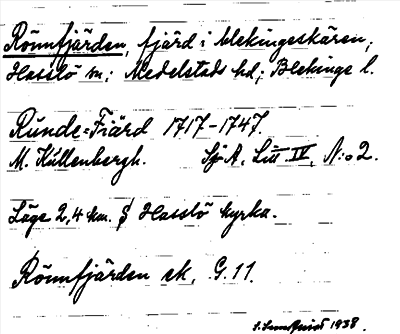 Rönnfjärden, fjärd i blekingeskären,
Hasslö sn; Medelstads hd; Blekinge l.
Runde-Fiärd 1717-1747.
M. Kullenbergh. Sj. A. Litt. IV, N:o 2.
Läge 2,4 km. S Hasslö kyrka.
Rönnfjärden ek. G. 11.
1938.